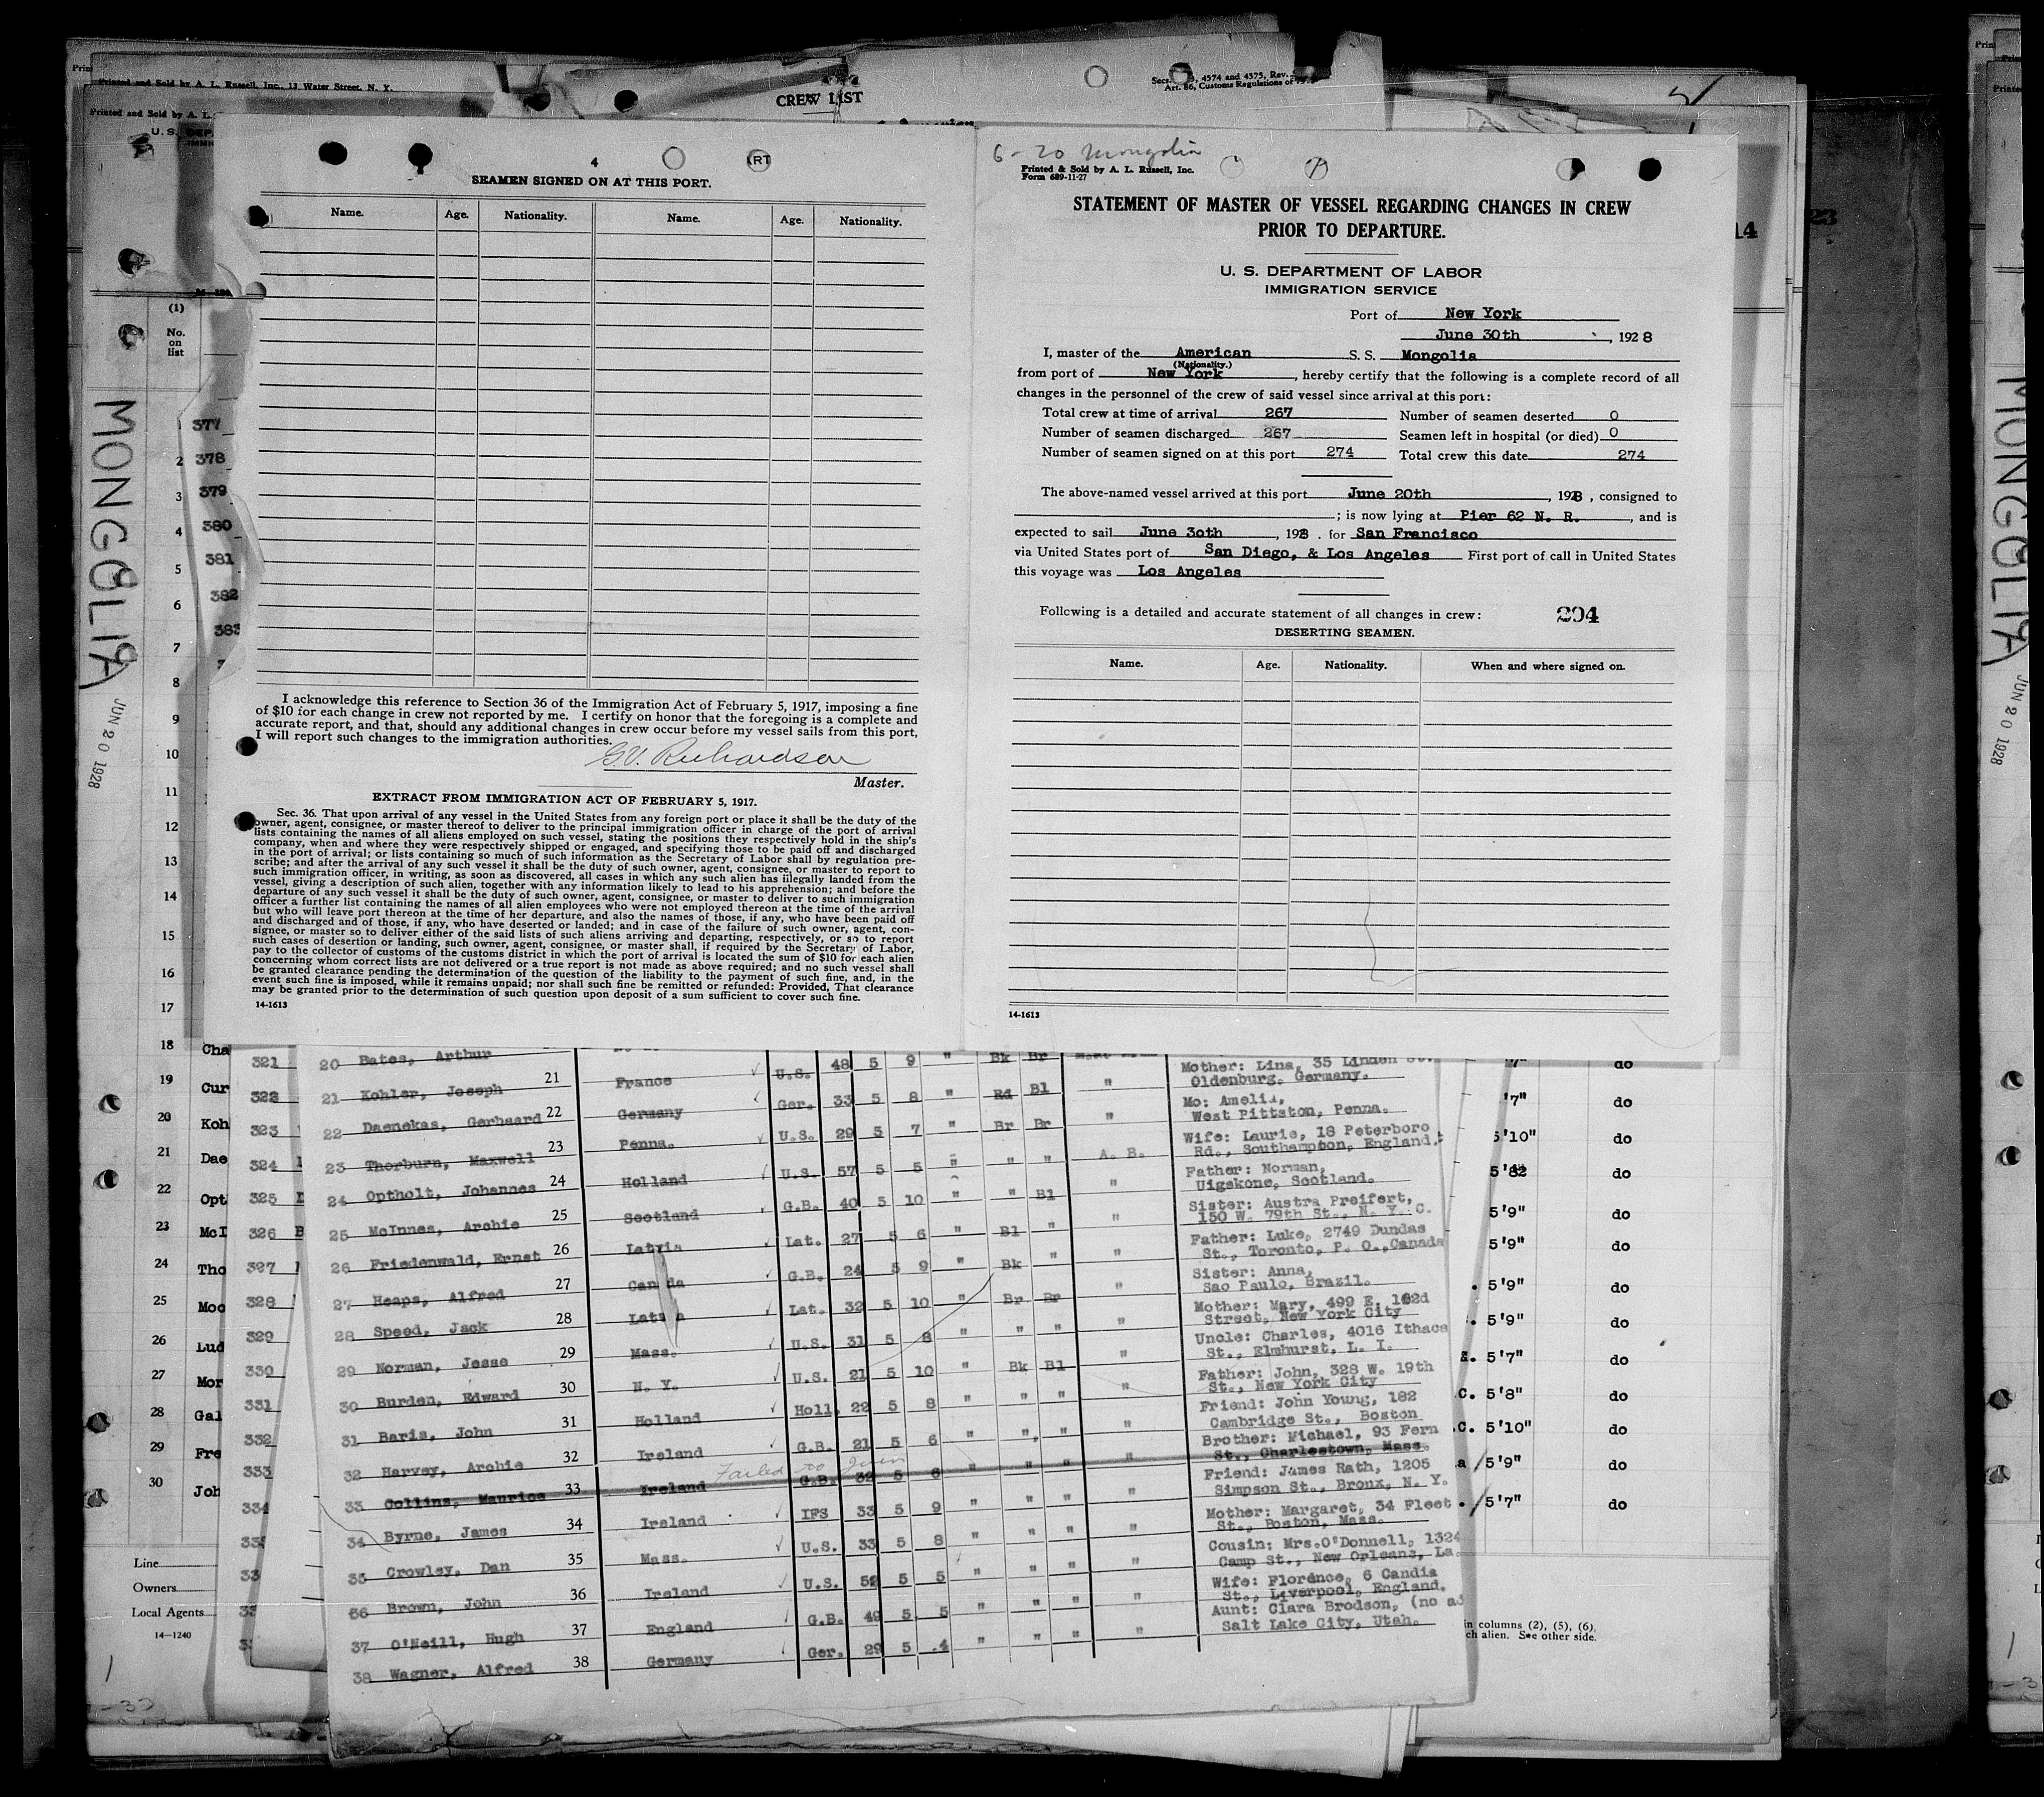 Printed and Sold by A. L. Russell, Inc., 13 Water Street, N. Y.
Printed and Sold by A. L.
CREW LIST
4574 and 4575, Rev.
Art. 86, Customs Regulations of
4
SEAMEN SIGNED ON AT THIS PORT.
Name. Age. Nationality. Name. Age. Nationality.
I acknowledge this reference to Section 36 of the Immigration Act of February 5, 1917, imposing a fine
of $10 for each change in crew not reported by me. I certify on honor that the foregoing is a complete and
accurate report, and that, should any additional changes in crew occur before my vessel sails from this port,
I will report such changes to the immigration authorities.
G.V. Richardson
Master.
EXTRACT FROM IMMIGRATION ACT OF FEBRUARY 5, 1917.
Sec. 36. That upon arrival of any vessel in the United States from any foreign port or place it shall be the duty of the
owner, agent, consignee, or master thereof to deliver to the principal immigration officer in charge of the port of arrival
lists containing the names of all aliens employed on such vessel, stating the positions they respectively hold in the ship's
company, when and where they were respectively shipped or engaged, and specifying those to be paid off and discharged
in the port of arrival; or lists containing so much of such information as the Secretary of Labor shall by regulation pre-
scribe; and after the arrival of any such vessel it shall be the duty of such owner, agent, consignee, or master to report to
such immigration officer, in writing, as soon as discovered, all cases in which any such alien has illegally landed from the
vessel, giving a description of such alien, together with any information likely to lead to his apprehension; and before the
departure of any such vessel it shall be the duty of such owner, agent, consignee, or master to deliver to such immigration
officer a further list containing the names of all alien employees who were not employed thereon at the time of the arrival
but who will leave port thereon at the time of her departure, and also the names of those, if any, who have been paid off
and discharged and of those, if any, who have deserted or landed; and in case of the failure of such owner, agent, con-
signee, or master so to deliver either of the said lists of such aliens arriving and departing, respectively, or so to report
such cases of desertion or landing, such owner, agent, consignee, or master shall, if required by the Secretary of Labor,
pay to the collector of customs of the customs district in which the port of arrival is located the sum of $10 for each alien
concerning whom correct lists are not delivered or a true report is not made as above required; and no such vessel shall
be granted clearance pending the determination of the question of the liability to the payment of such fine, and, in the
event such fine is imposed, while it remains unpaid; nor shall such fine be remitted or refunded: Provided, That clearance
may be granted prior to the determination of such question upon deposit of a sum sufficient to cover such fine.
14-1613
6-20 Mongolia
Printed & Sold by A. L. Russell, Inc.
Form 689-11-27
STATEMENT OF MASTER OF VESSEL REGARDING CHANGES IN CREW
PRIOR TO DEPARTURE.
U. S. DEPARTMENT OF LABOR
IMMIGRATION SERVICE
Port of New York
June 30th, 1928
I, master of the American S. S. Mongolia
(Nationality.)
from port of New York, hereby certify that the following is a complete record of all
changes in the personnel of the crew of said vessel since arrival at this port:
Total crew at time of arrival 267 Number of seamen deserted 0
Number of seamen discharged 267 Seamen left in hospital (or died) 0
Number of seamen signed on at this port 274 Total crew this date 274
The above-named vessel arrived at this port June 20th, 1928, consigned to
; is now lying at Pier 62 N. R., and is
expected to sail June 3oth, 1928. for San Francisco
via United States port of San Diego, & Los Angeles First port of call in United States
this voyage was Los Angeles
Following is a detailed and accurate statement of all changes in crew: 294
DESERTING SEAMEN.
Name. Age. Nationality. When and where signed on.
14-1613
14
23
MONGOLIA
JUN 20 1928
(1)
No.
on
list
377
378
379
380
381
382
383
1
2
3
4
5
6
7
8
9
10
11
12
13
14
15
16
17
18 Cha
19 Cur
20 Koh
21 Dae
22 Opt
23 McI
24 Tho
25 Moo
26 Lud
27 Mor
28 Gal
29 Fre
30 Joh
Line
Owners
Local Agents
14-1240
321 20 Bates, Arthur
322 21 Kohler, Joseph 21 France U.S. 48 5 9 " Bk Br Mother: Lina, 35 Linden St.
Oldenburg, Germany.
323 22 Daenekas, Gerhaard 22 Germany Ger. 33 5 8 " Rd Bl " Mo: Amelia,
West Pittston, Penna.
324 23 Thorburn, Maxwell 23 Penna. U.S. 29 5 7 " Br Br " Wife: Laurie, 18 Peterboro
Rd., Southampton, England.
325 24 Optholt, Johannes 24 Holland U.S. 57 5 5 " " " A. B. Father: Norman,
Uigskone, Scotland.
326 25 McInnes, Archie 25 Scotland G.B. 40 5 10 " " Bl " Sister: Austra Preifert,
150 W. 79th St., N. Y. C.
327 26 Friedenwald, Ernst 26 Latvia Lat. 27 5 6 " Bl " " Father: Luke, 2749 Dundas
St., Toronto, P. O., Canada
328 27 Heaps, Alfred 27 Canada G.B. 24 5 9 " Bk " " Sister: Anna,
Sao Paulo, Brazil.
329 28 Speed, Jack 28 Lat. 32 5 10 " Br Br " Mother: Mary, 499 E. 162d
Street, New York City
330 29 Norman, Jesse 29 Mass. U.S. 31 5 8 " " " " Uncle: Charles, 4016 Ithaca
St., Elmhurst, L. I.
331 30 Burden, Edward 30 N. Y. U.S. 21 5 10 " Bk Bl " Father: John, 328 W. 19th
St., New York City
332 31 Baris, John 31 Holland Holl. 22 5 8 " " " " Friend: John Young, 182
Cambridge St., Boston
333 32 Harvey, Archie 32 Ireland G.B. 21 5 6 " " " " Brother: Michael, 93 Fern
St., Charlestown, Mass.
Failed to join
334 33 Collins, Maurice 33 Ireland G.B. 32 5 6 " " " " Friend: James Rath, 1205
Simpson St., Bronx, N. Y.
34 Byrne, James 34 Ireland IFS 33 5 9 " " " " Mother: Margaret, 34 Fleet
St., Boston, Mass.
35 Crowley, Dan 35 Mass. U.S. 33 5 8 " " " " Cousin: Mrs. O'Donnell, 1324
Camp St., New Orleans, La.
36 Brown, John 36 Ireland U.S. 52 5 5 " " " " Wife: Florence, 6 Candia
St., Liverpool, England.
37 O'Neill, Hugh 37 England G.B. 49 5 5 " " " " Aunt: Clara Brodson, (no ad
Salt Lake City, Utah.
38 Wagner, Alfred 38 Germany Ger. 29 5 4 " " " "
do
'7" do
5'10" do
5'82 do
5'9" do
5'9" do
5'9" do
5'9" do
5'7" do
C. 5'8" do
C. 5'10" do
5'9" do
5'7" do
in columns (2), (5), (6)
ch alien. See other side.
MONGOLIA
JUN 20 1928